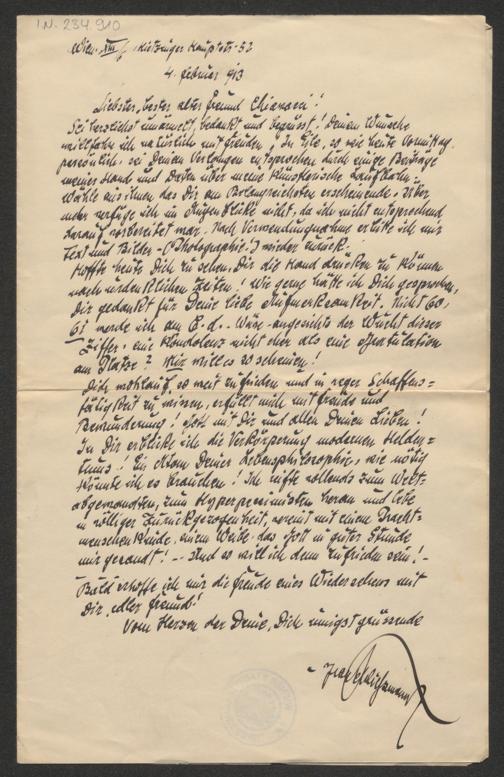 I.N. 234.910
Wien XIII/ Hietzinger Hauptstr. 52
4. Februar 913
Liebster, bester alter Freund Chiavacci!
Sei herzlichst umarmt, bedankt und begrüsst! Deinem Wunsche
willfahre ich natürlich mit Freuden! In Eile, so wie heute Vormittag
persönlich, sei Deinem Verlangen entsprochen durch einige Beiträge
meiner Hand und Daten über meine künstlerische Laufbahn.
Wähle aus ihnen das Dir am Belangreichsten erscheinende. Über
mehr verfüge ich im Augenblicke nicht, da ich nicht entsprechend
darauf vorbereitet war. Nach Verwendungnahme erbitte ich mir
Text und Bilder (Photographie.) wieder zurück.
Hoffte heute Dich zu sehen, Dir die Hand drücken zu können
nach undenklichen Zeiten! Wie gerne hätte ich Dich gesprochen,
Dir gedankt für Deine liebe Aufmerksamkeit. Nicht 60,
61 werde ich am 8. d. Wäre angesichts der Wucht dieser
Ziffer, eine Kondolenz nicht eher als eine Gratulation
am Platze? Mir will es so scheinen!
Dich wohlauf, so weit zufrieden und in reger Schaffens=
tätigkeit zu wissen, erfüllt mich mit Freude und
Bewunderung! Gott mit Dir und allen Deinen Lieben!
In Dir erblicke ich die Verkörperung modernen Helden=
tums! Ein Atom Deiner Lebensphilosophie, wie nötig
könnte ich es brauchen! Ich reifte vollends zum Welt=
abgewandten, zum Hyperpessimisten heran und lebe
in völliger Zurückgezogenheit, vereint mit einem Pracht=
menschenkinde, einem Weibe, das Gott in guter Stunde
mir gesandt! – Und so will ich denn zufrieden sein! –
Bald erhoffe ich mir die Freude eines Wiedersehens mit
Dir, edler Freund!
Vom Herzen der Deine, Dich innigst grüssende